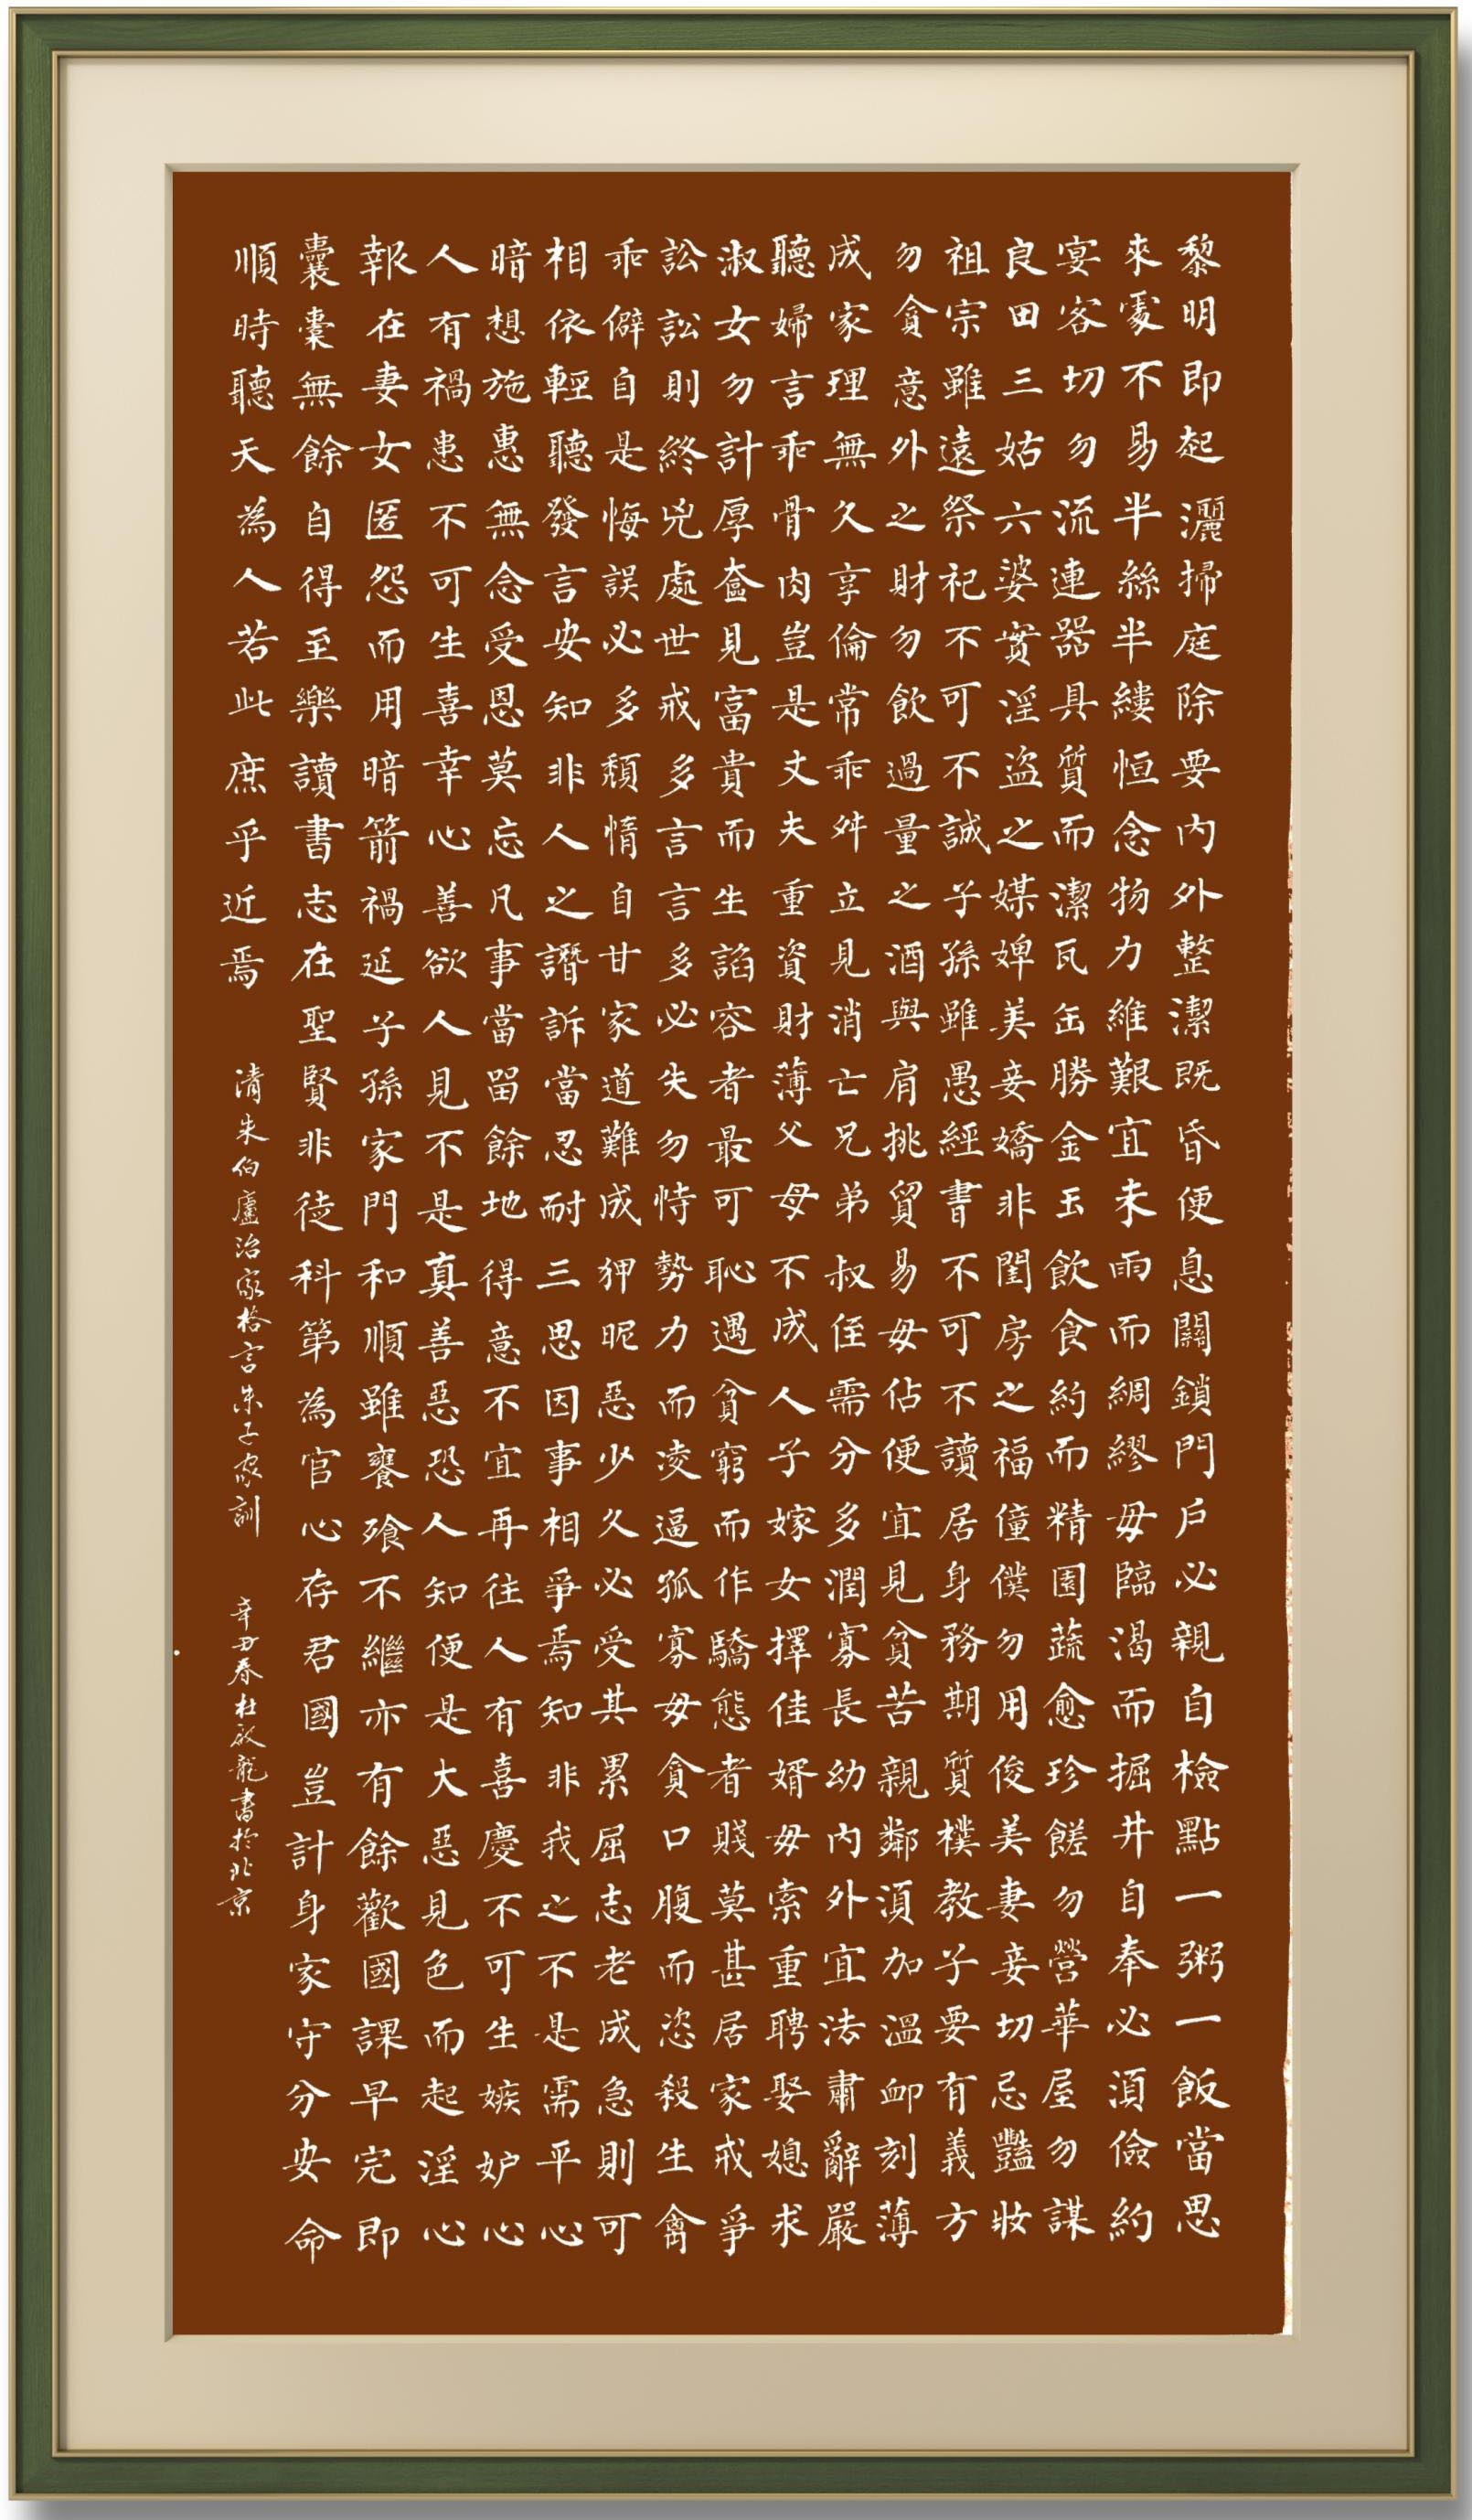 黎明即起灑掃庭除要內外整潔既昏便息關鎖門戶必親自檢點一粥一飯當思
來處不易半絲半縷恒念物力維艱宜未雨而綢繆毋臨渴而掘井自奉必須儉約
宴客切勿流連器具質而潔瓦缶勝金玉飲食約而精園蔬愈珍饈勿營華屋勿謀
良田三姑六婆實淫盜之媒婢美妾嬌非閨房之福僮僕勿用俊美妻妾切忌豔妝
祖宗雖遠祭祀不可不誠子孫雖愚經書不可不讀居身務期質樸教子要有義方
勿貪意外之財勿飲過量之酒與肩挑貿易毋佔便宜見貧苦親鄰須加溫卹刻薄
成家理無久享倫常乖舛立見消亡兄弟叔侄需分多潤寡長幼內外宜法肅辭嚴
聽婦言乖骨肉豈是丈夫重資財薄父母不成人子嫁女擇佳婿毋索重聘娶媳求
淑女勿計厚奩見富貴而生諂容者最可恥遇貧窮而作驕態者賤莫甚居家戒爭
訟訟則終兇處世戒多言言多必失勿恃勢力而凌逼孤寡毋貪口腹而恣殺生禽
乖僻自是悔誤必多頹惰自甘家道難成狎昵惡少久必受其累屈志老成急則可
相依輕聽發言安知非人之譖訴當忍耐三思因事相爭焉知非我之不是需平心
暗想施惠無念受恩莫忘凡事當留餘地得意不宜再往人有喜慶不可生嫉妒心
人有禍患不可生喜幸心善欲人見不是真善惡恐人知便是大惡見色而起淫心
報在妻女匿怨而用暗箭禍延子孫家門和順雖饔飧不繼亦有餘歡國課早完即
囊橐無餘自得至樂讀書志在聖賢非徒科第為官心存君國豈計身家守分安命
順時聽天為人若此庶乎近焉 清朱伯廬治家格言朱子家訓 辛丑春杜啟龍書於北京